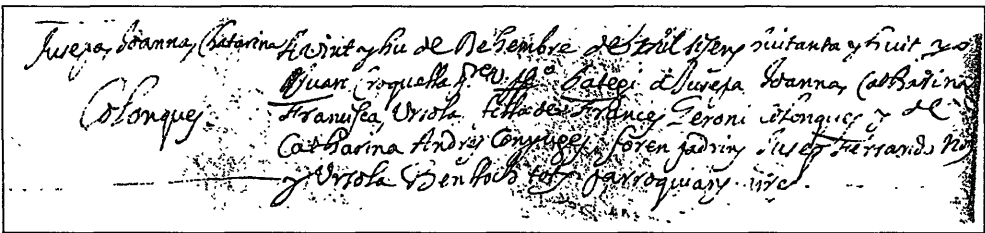 Jusepa, Joanna, Chatarina
Colonques
A vint y hu de Dehembre de Mil sisens huitanta y huit yo
Juan Croquella Pre. bategi a Jusepa Joanna, Catharina
Francisca, Ursola filla de Frances Geroni Colonques y de
Catharina Andres Conjuges, foren padrins Jusep Ferrando
y Ursola Benlloch tots parroquians